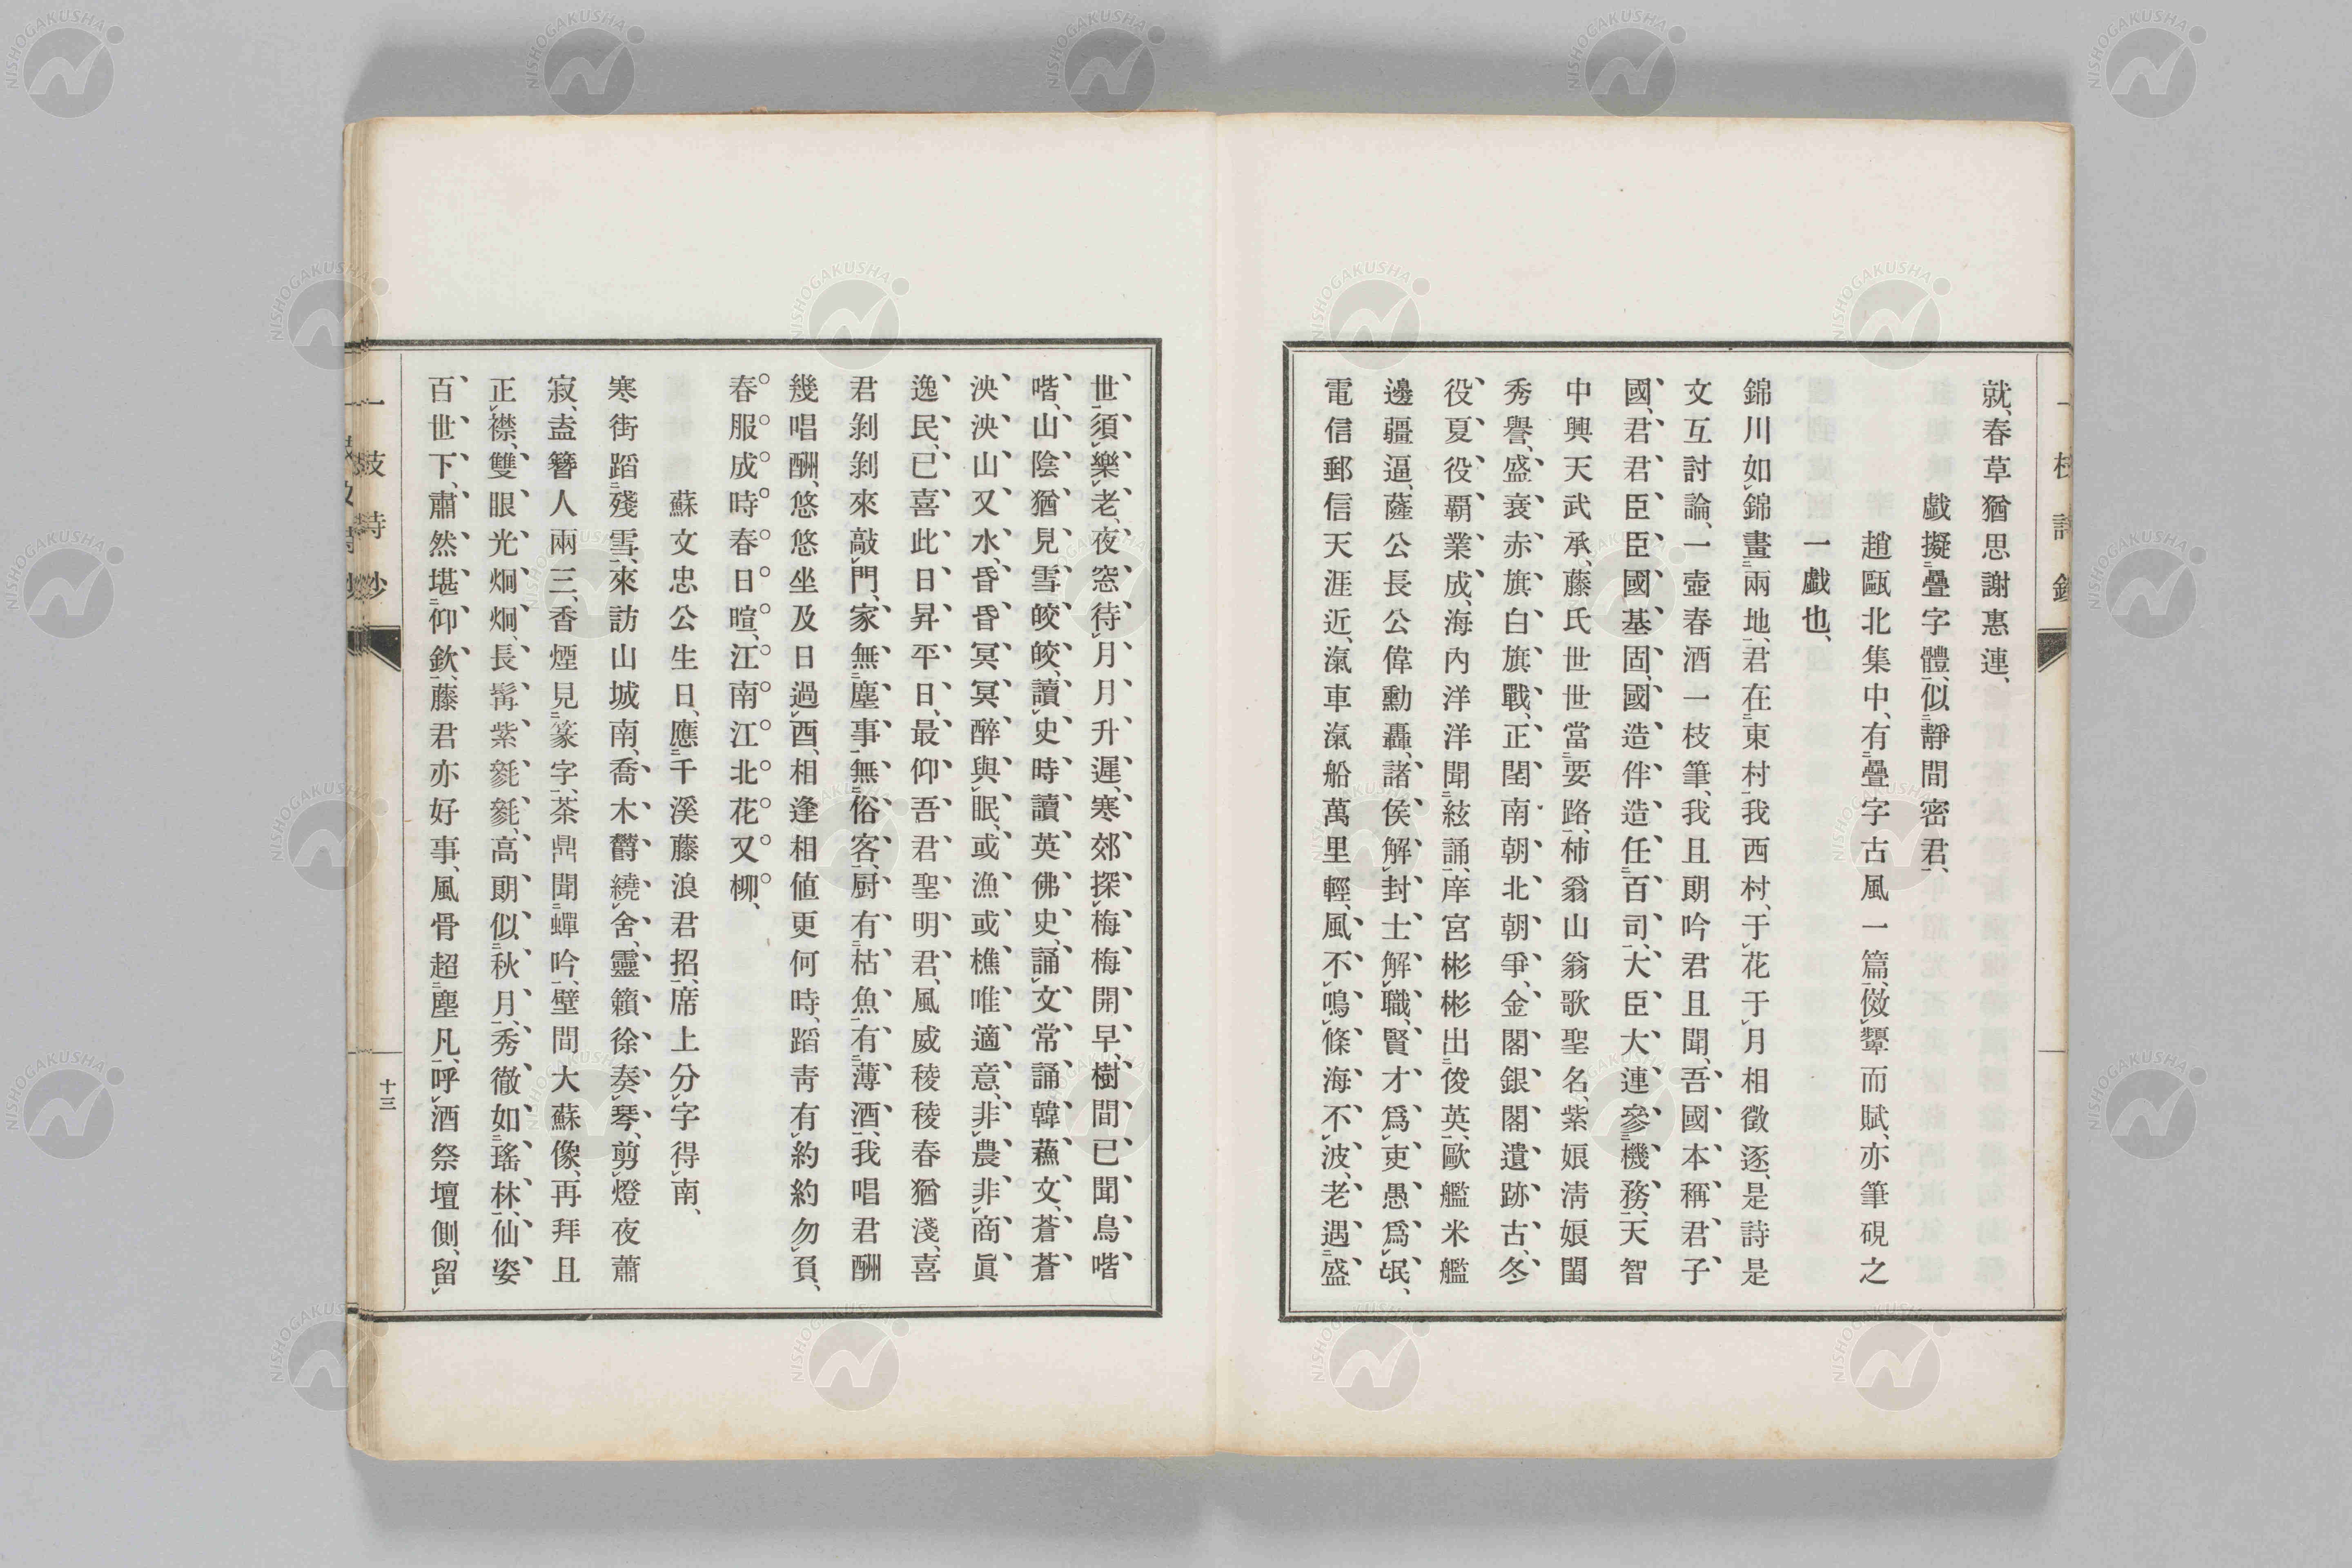 就、春草猶思謝惠連、
戲擬疊字體、似靜間密君、
趙甌北集中、有疊字古風一篇、傚顰而賦、亦筆硯之
一戲也、
錦川如錦畫兩地、君在東村我西村、于花于月相徵逐、是詩是
文互討論、一壺春酒一枝筆、我且朗吟君且聞、吾國本稱君子
國、君君臣臣國基固、國造伴造任百司、大臣大連參機務、天智
中興天武承、藤氏世世當要路、柿翁山翁歌聖名、紫娘淸娘閨
秀譽、盛衰赤旗白旗戰、正閏南朝北朝爭、金閣銀閣遺跡古、冬
役夏役覇業成、海內洋洋聞絃誦、庠宮彬彬出俊英、歐艦米艦
邊疆逼、薩公長公偉勳轟、諸侯解封士解職、賢才爲吏愚爲氓、
電信郵信天涯近、滊車滊船萬里輕、風不鳴條海不波、老遇盛
世須樂老、夜窓待月月升遲、寒郊探梅梅開早、樹間已聞鳥喈
喈、山陰猶見雪皎皎、讀史時讀英佛史、誦文常誦韓蘓文、蒼蒼
泱泱山又水、昏昏冥冥醉與眠、或漁或樵唯適意、非農非商眞
逸民、已喜此日昇平日、最仰吾君聖明君、風威稜稜春猶淺、喜
君剝剝來敲門、家無塵事無俗客、厨有枯魚有薄酒、我唱君酬
幾唱酬、悠悠坐及日過酉、相逢相値更何時、蹈靑有約約勿負、
春服成時春日暄、江南江北花又柳、
蘇文忠公生日、應千溪藤浪君招、席上分字得南、
寒街蹈殘雪、來訪山城南、喬木欝繞舍、靈籟徐奏琴、剪燈夜蕭
寂、盍簪人兩三、香煙見篆字、茶鼎聞蟬吟、壁間大蘇像、再拜且
正襟、雙眼光炯炯、長髯紫毿毿、高朗似秋月、秀徹如瑤林、仙姿
百世下、肅然堪仰欽、藤君亦好事、風骨超塵凡、呼酒祭壇側、留
十三